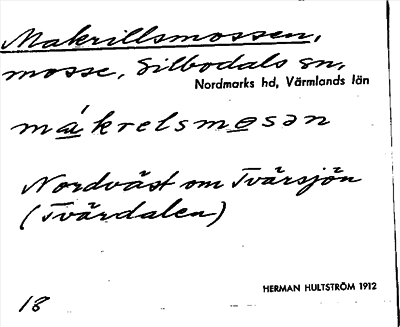 Makrillsmossen,
mosse, Silbodals sn,
Nordmarks hd, Värmlands län
mákrelsmosən
Nordväst om Tvärsjön
(Tvärdalen)
HERMAN HULTSTRÖM 1912
18